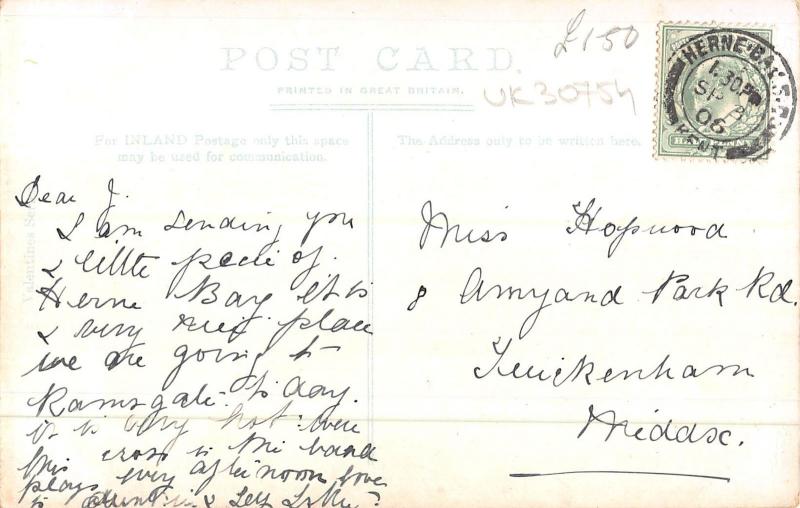 POST CARD.
PRINTED IN GREAT BRITAIN.
£1.50
UK30754
HERNE BAY
1.30PM
SP 3
06
KENT
HALF PENNY
For INLAND Postage only this space
may be used for communication.
The Address only to be written here.
Valentines Se
Dear J.
I am sending you
a little peice of
Herne Bay it is
a very nice place
we are going to
Ramsgate to day.
it is very hot were
this cross is the band
plays every afternoon love
to
Miss Hopwood
8 Amyand Park Rd.
Twickenham
Middx.